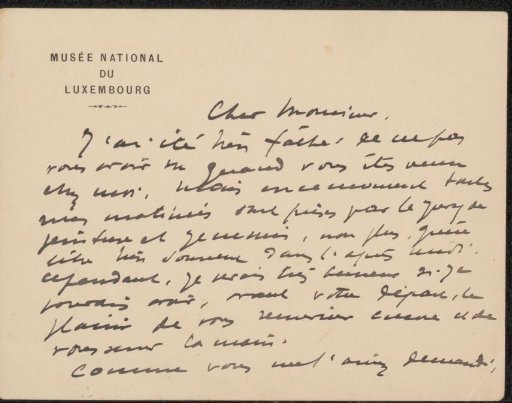 MUSÉE NATIONAL
DU
LUXEMBOURG
Cher Monsieur,
J'ai été très fâché de ne pas
vous avoir vu quand vous êtes venu
chez moi, mais en ce moment toutes
mes matinées sont prises par le jury de
peinture et je ne suis, non plus, guère
libre très souvent dans l'après midi.
Cependant, je serais très heureux si je
pouvais avoir, avant votre départ, le
plaisir de vous remercier encore et de
vous serrer la main.
Comme vous me l'aviez demandé,